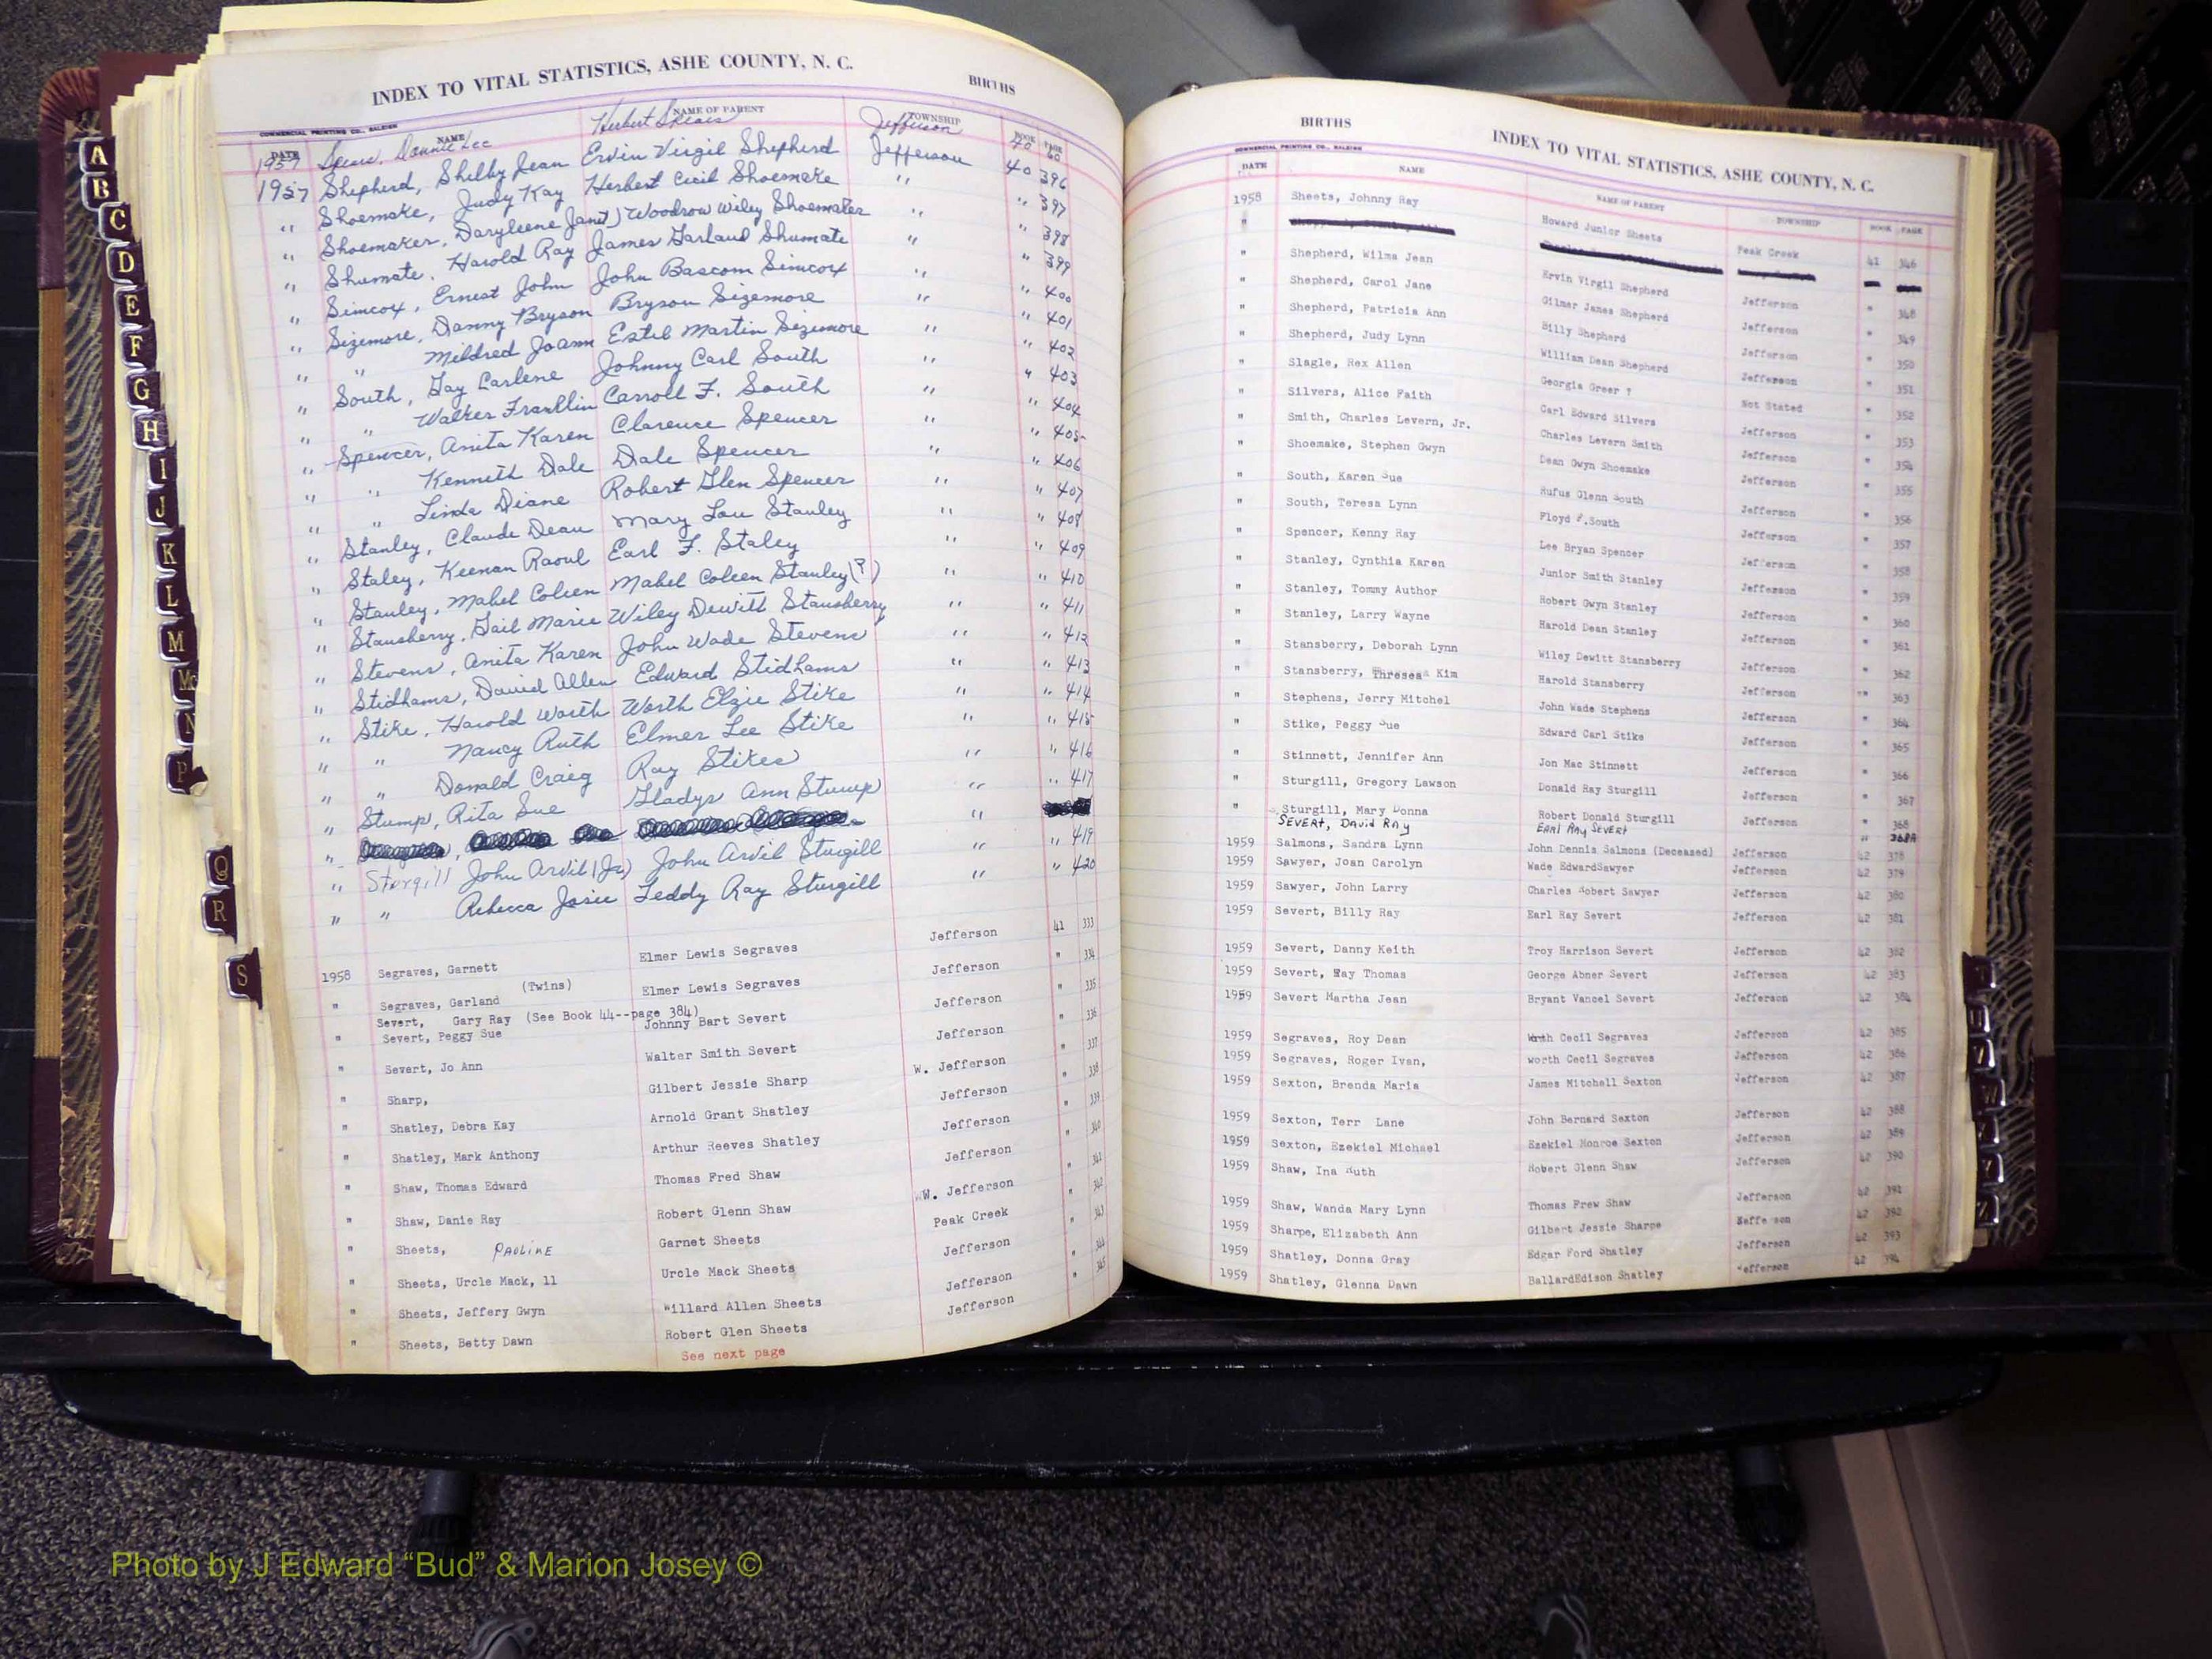 INDEX TO VITAL STATISTICS, ASHE COUNTY, N. C. BIRTHS
COMMERCIAL PRINTING CO., RALEIGH
DATE NAME NAME OF PARENT TOWNSHIP BOOK PAGE
1957 Spears, Donnie Lee Herbert Spears Jefferson 40 60
1957 Shepherd, Shelby Jean Ervin Virgil Shepherd Jefferson 40 396
" Shoemake, Judy Kay Herbert Cecil Shoemake " " 397
" Shoemaker, Daryleene Janet) Woodrow Wiley Shoemaker " " 398
" Shumate, Harold Ray James Garland Shumate " " 399
" Simcox, Ernest John John Bascom Simcox " " 400
" Sizemore, Danny Bryson Bryson Sizemore " " 401
" " Mildred Joann Estel Martin Sizemore " " 402
" South, Gay Carlene Johnny Carl South " " 403
" " Walter Franklin Carroll F. South " " 404
" Spencer, Anita Karen Clarence Spencer " " 405
" " Kenneth Dale Dale Spencer " " 406
" " Linda Diane Robert Glen Spencer " " 407
" Stanley, Claude Dean Mary Lou Stanley " " 408
" Staley, Keenan Raoul Earl F. Staley " " 409
" Stanley, Mabel Coleen Mabel Coleen Stanley(?) " " 410
" Stansberry, Gail Marie Wiley Dewitt Stansberry " " 411
" Stevens, Anita Karen John Wade Stevens " " 412
" Stidhams, David Allen Edward Stidhams " " 413
" Stike, Harold Worth Worth Elzie Stike " " 414
" " Nancy Ruth Elmer Lee Stike " " 415
" " Donald Craig Ray Stikes " " 416
" Stump, Rita Sue Gladys Ann Stump " " 417
"
" Sturgill John Arvil (Jr) John Arvil Sturgill " " 419
" " Rebecca Josie Teddy Ray Sturgill " " 420
1958 Segraves, Garnett Elmer Lewis Segraves Jefferson 41 333
(Twins)
" Segraves, Garland Elmer Lewis Segraves Jefferson " 334
Severt, Gary Ray (See Book 44--page 384)
" Severt, Peggy Sue Johnny Bart Severt Jefferson " 335
" Severt, Jo Ann Walter Smith Severt Jefferson " 336
" Sharp, Gilbert Jessie Sharp W. Jefferson " 337
" Shatley, Debra Kay Arnold Grant Shatley Jefferson " 338
" Shatley, Mark Anthony Arthur Reeves Shatley Jefferson " 339
" Shaw, Thomas Edward Thomas Fred Shaw Jefferson " 340
" Shaw, Danie Ray Robert Glenn Shaw W. Jefferson " 341
" Sheets, PAULINE Garnet Sheets Peak Creek " 342
" Sheets, Urcle Mack, 11 Urcle Mack Sheets Jefferson " 343
" Sheets, Jeffery Gwyn Willard Allen Sheets Jefferson " 344
" Sheets, Betty Dawn Robert Glen Sheets Jefferson " 345
See next page
A
B
C
D
E
F
G
H
I
J
K
L
M
Mc
N
P
Q
R
S
BIRTHS INDEX TO VITAL STATISTICS, ASHE COUNTY, N. C.
COMMERCIAL PRINTING CO., RALEIGH
DATE NAME NAME OF PARENT TOWNSHIP BOOK PAGE
1958 Sheets, Johnny Ray Howard Junior Sheets Peak Creek 41 346
"
" Shepherd, Wilma Jean Ervin Virgil Shepherd Jefferson " 348
" Shepherd, Carol Jane Gilmer James Shepherd Jefferson " 349
" Shepherd, Patricia Ann Billy Shepherd Jefferson " 350
" Shepherd, Judy Lynn William Dean Shepherd Jefferson " 351
" Slagle, Rex Allen Georgia Greer ? Not Stated " 352
" Silvers, Alice Faith Carl Edward Silvers Jefferson " 353
" Smith, Charles Levern, Jr. Charles Levern Smith Jefferson " 354
" Shoemake, Stephen Gwyn Dean Gwyn Shoemake Jefferson " 355
" South, Karen Sue Rufus Glenn South Jefferson " 356
" South, Teresa Lynn Floyd F. South Jefferson " 357
" Spencer, Kenny Ray Lee Bryan Spencer Jefferson " 358
" Stanley, Cynthia Karen Junior Smith Stanley Jefferson " 359
" Stanley, Tommy Author Robert Gwyn Stanley Jefferson " 360
" Stanley, Larry Wayne Harold Dean Stanley Jefferson " 361
" Stansberry, Deborah Lynn Wiley Dewitt Stansberry Jefferson " 362
" Stansberry, Kim Harold Stansberry Jefferson " 363
" Stephens, Jerry Mitchel John Wade Stephens Jefferson " 364
" Stike, Peggy Sue Edward Carl Stike Jefferson " 365
" Stinnett, Jennifer Ann Jon Mac Stinnett Jefferson " 366
" Sturgill, Gregory Lawson Donald Ray Sturgill Jefferson " 367
" Sturgill, Mary Donna Robert Donald Sturgill Jefferson " 368
SEVERT, DAVID RAY EARL RAY SEVERT " 368A
1959 Salmons, Sandra Lynn John Dennis Salmons (Deceased) Jefferson 42 378
1959 Sawyer, Joan Carolyn Wade EdwardSawyer Jefferson 42 379
1959 Sawyer, John Larry Charles Robert Sawyer Jefferson 42 380
1959 Severt, Billy Ray Earl Ray Severt Jefferson 42 381
1959 Severt, Danny Keith Troy Harrison Severt Jefferson 42 382
1959 Severt, Ray Thomas George Abner Severt Jefferson 42 383
1959 Severt Martha Jean Bryant Vancel Severt Jefferson 42 384
1959 Segraves, Roy Dean Worth Cecil Segraves Jefferson 42 385
1959 Segraves, Roger Ivan, worth Cecil Segraves Jefferson 42 386
1959 Sexton, Brenda Maria James Mitchell Sexton Jefferson 42 387
1959 Sexton, Terr Lane John Bernard Sexton Jefferson 42 388
1959 Sexton, Ezekiel Michael Ezekiel Monroe Sexton Jefferson 42 389
1959 Shaw, Ina Ruth Robert Glenn Shaw Jefferson 42 390
1959 Shaw, Wanda Mary Lynn Thomas Frew Shaw Jefferson 42 391
1959 Sharpe, Elizabeth Ann Gilbert Jessie Sharpe 42 392
1959 Shatley, Donna Gray Edgar Ford Shatley Jefferson 42 393
1959 Shatley, Glenna Dawn BallardEdison Shatley Jefferson 42 394
Photo by J Edward “Bud” & Marion Josey ©